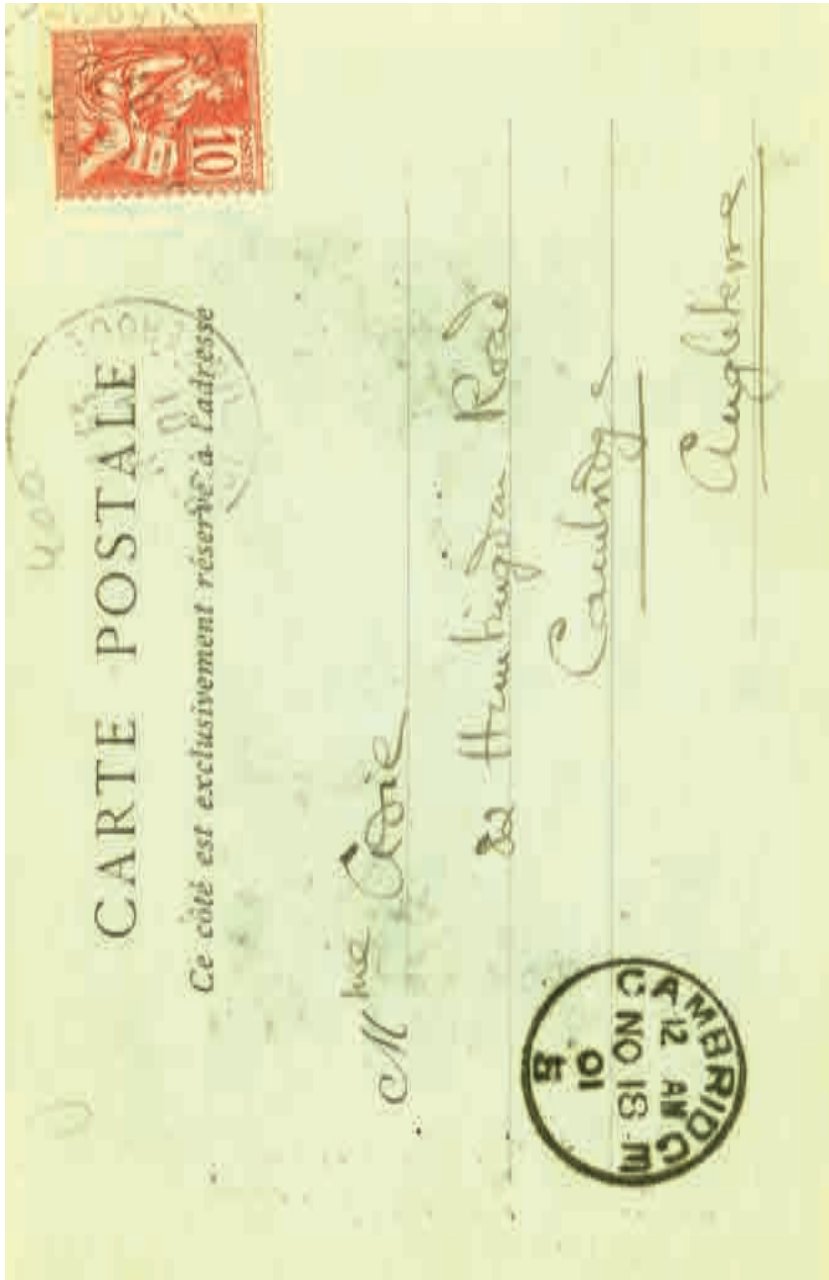 10
400
CARTE POSTALE
Ce côté est exclusivement réservé à l'adresse
Mme
82 Huntingdon Road
Cambridge
Angleterre
CAMBRIDGE
12 AM
NO 18
01